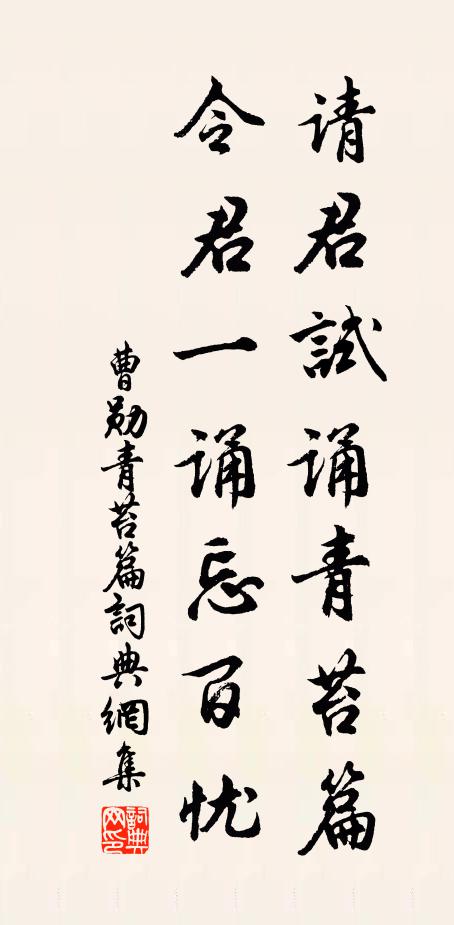 请君試诵青苔篇
令君一诵忘百忧
曹勛青苔篇詞典網集
詞典
网印